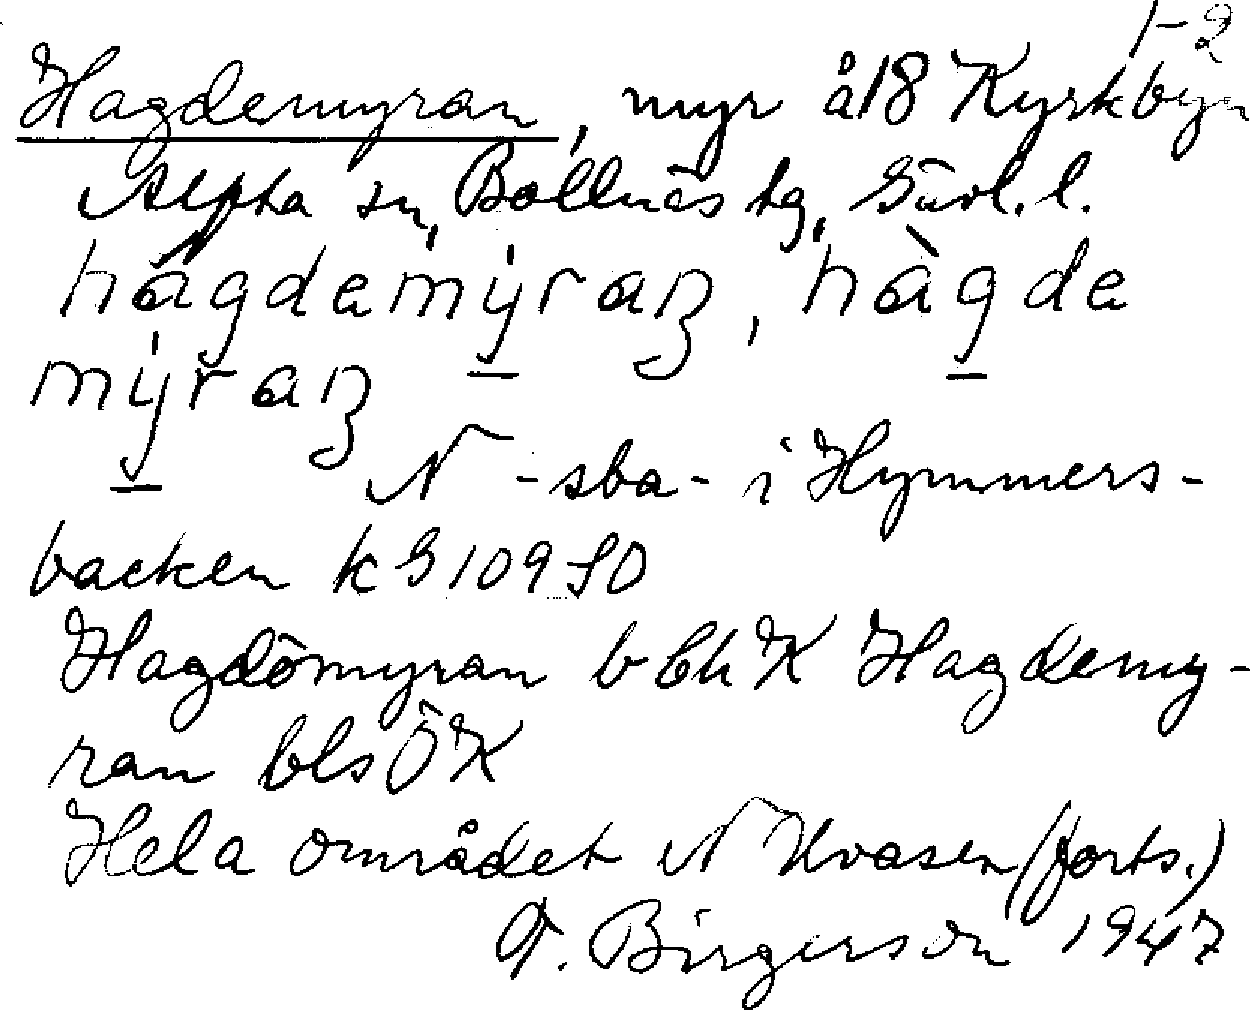 1-2
Hagdemyran, myr å 18 Kyrkbyn
Alfta sn, Bollnäs tg, Gävl. l.
hàgdemýran, hàgde
mýran
N -sba- i Hymmers-
backen k G 109 SO
Hagdömyran b bh K Hagdemy-
ran bls Ö K
Hela området N Kvasen (forts.)
T. Birgerson 1947